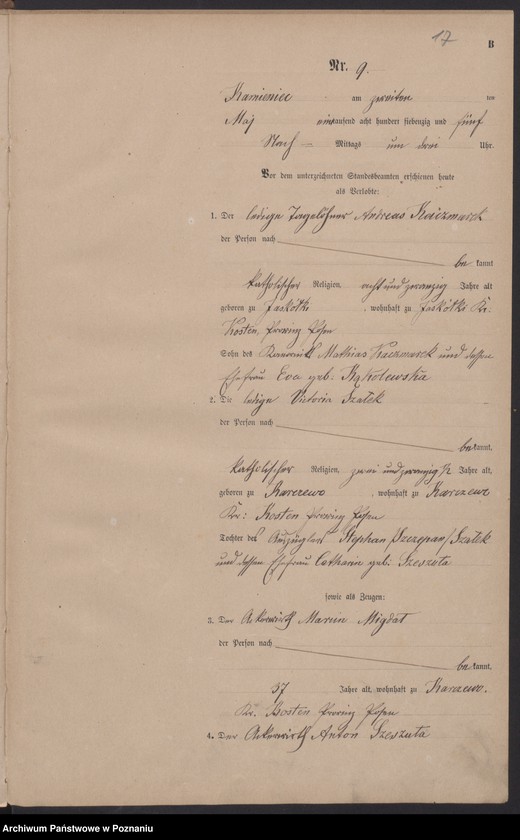 17
B
Nr. 9.
Kamieniec am zweiten ten
Maj eintausend acht hundert siebenzig und fünf
Nach = Mittags um drei Uhr.
Vor dem unterzeichneten Standesbeamten erschienen heute
als Verlobte:
1. Der ledige Tagelöhner Andreas Kaczmarek
der Person nach
be kannt
katholischer Religion, acht und zwanzig Jahre alt
geboren zu Jaskółki, wohnhaft zu Jaskółki Kr:
Kosten, Provinz Posen
Sohn des Mathias Kaczmarek und dessen
Ehefrau Eva geb: Kąkolewska
2. Die ledige Victoria Szałek
der Person nach
bekannt,
katholischer Religion, zwei und zwanzig ½ Jahre alt,
geboren zu Karczewo, wohnhaft zu Karczewo
Kr: Kosten Provinz Posen
Tochter des Auszügler Stephan /Szczepan/ Szałek
und dessen Ehefrau Catharin geb: Szeszuta
sowie als Zeugen:
3. Der Ackerwirth Marcin Migdat
der Person nach
bekannt,
37 Jahre alt, wohnhaft zu Karczewo.
Kr. Kosten Provinz Posen
4. Der Ackerwirth Anton Szeszuta
Archiwum Państwowe w Poznaniu